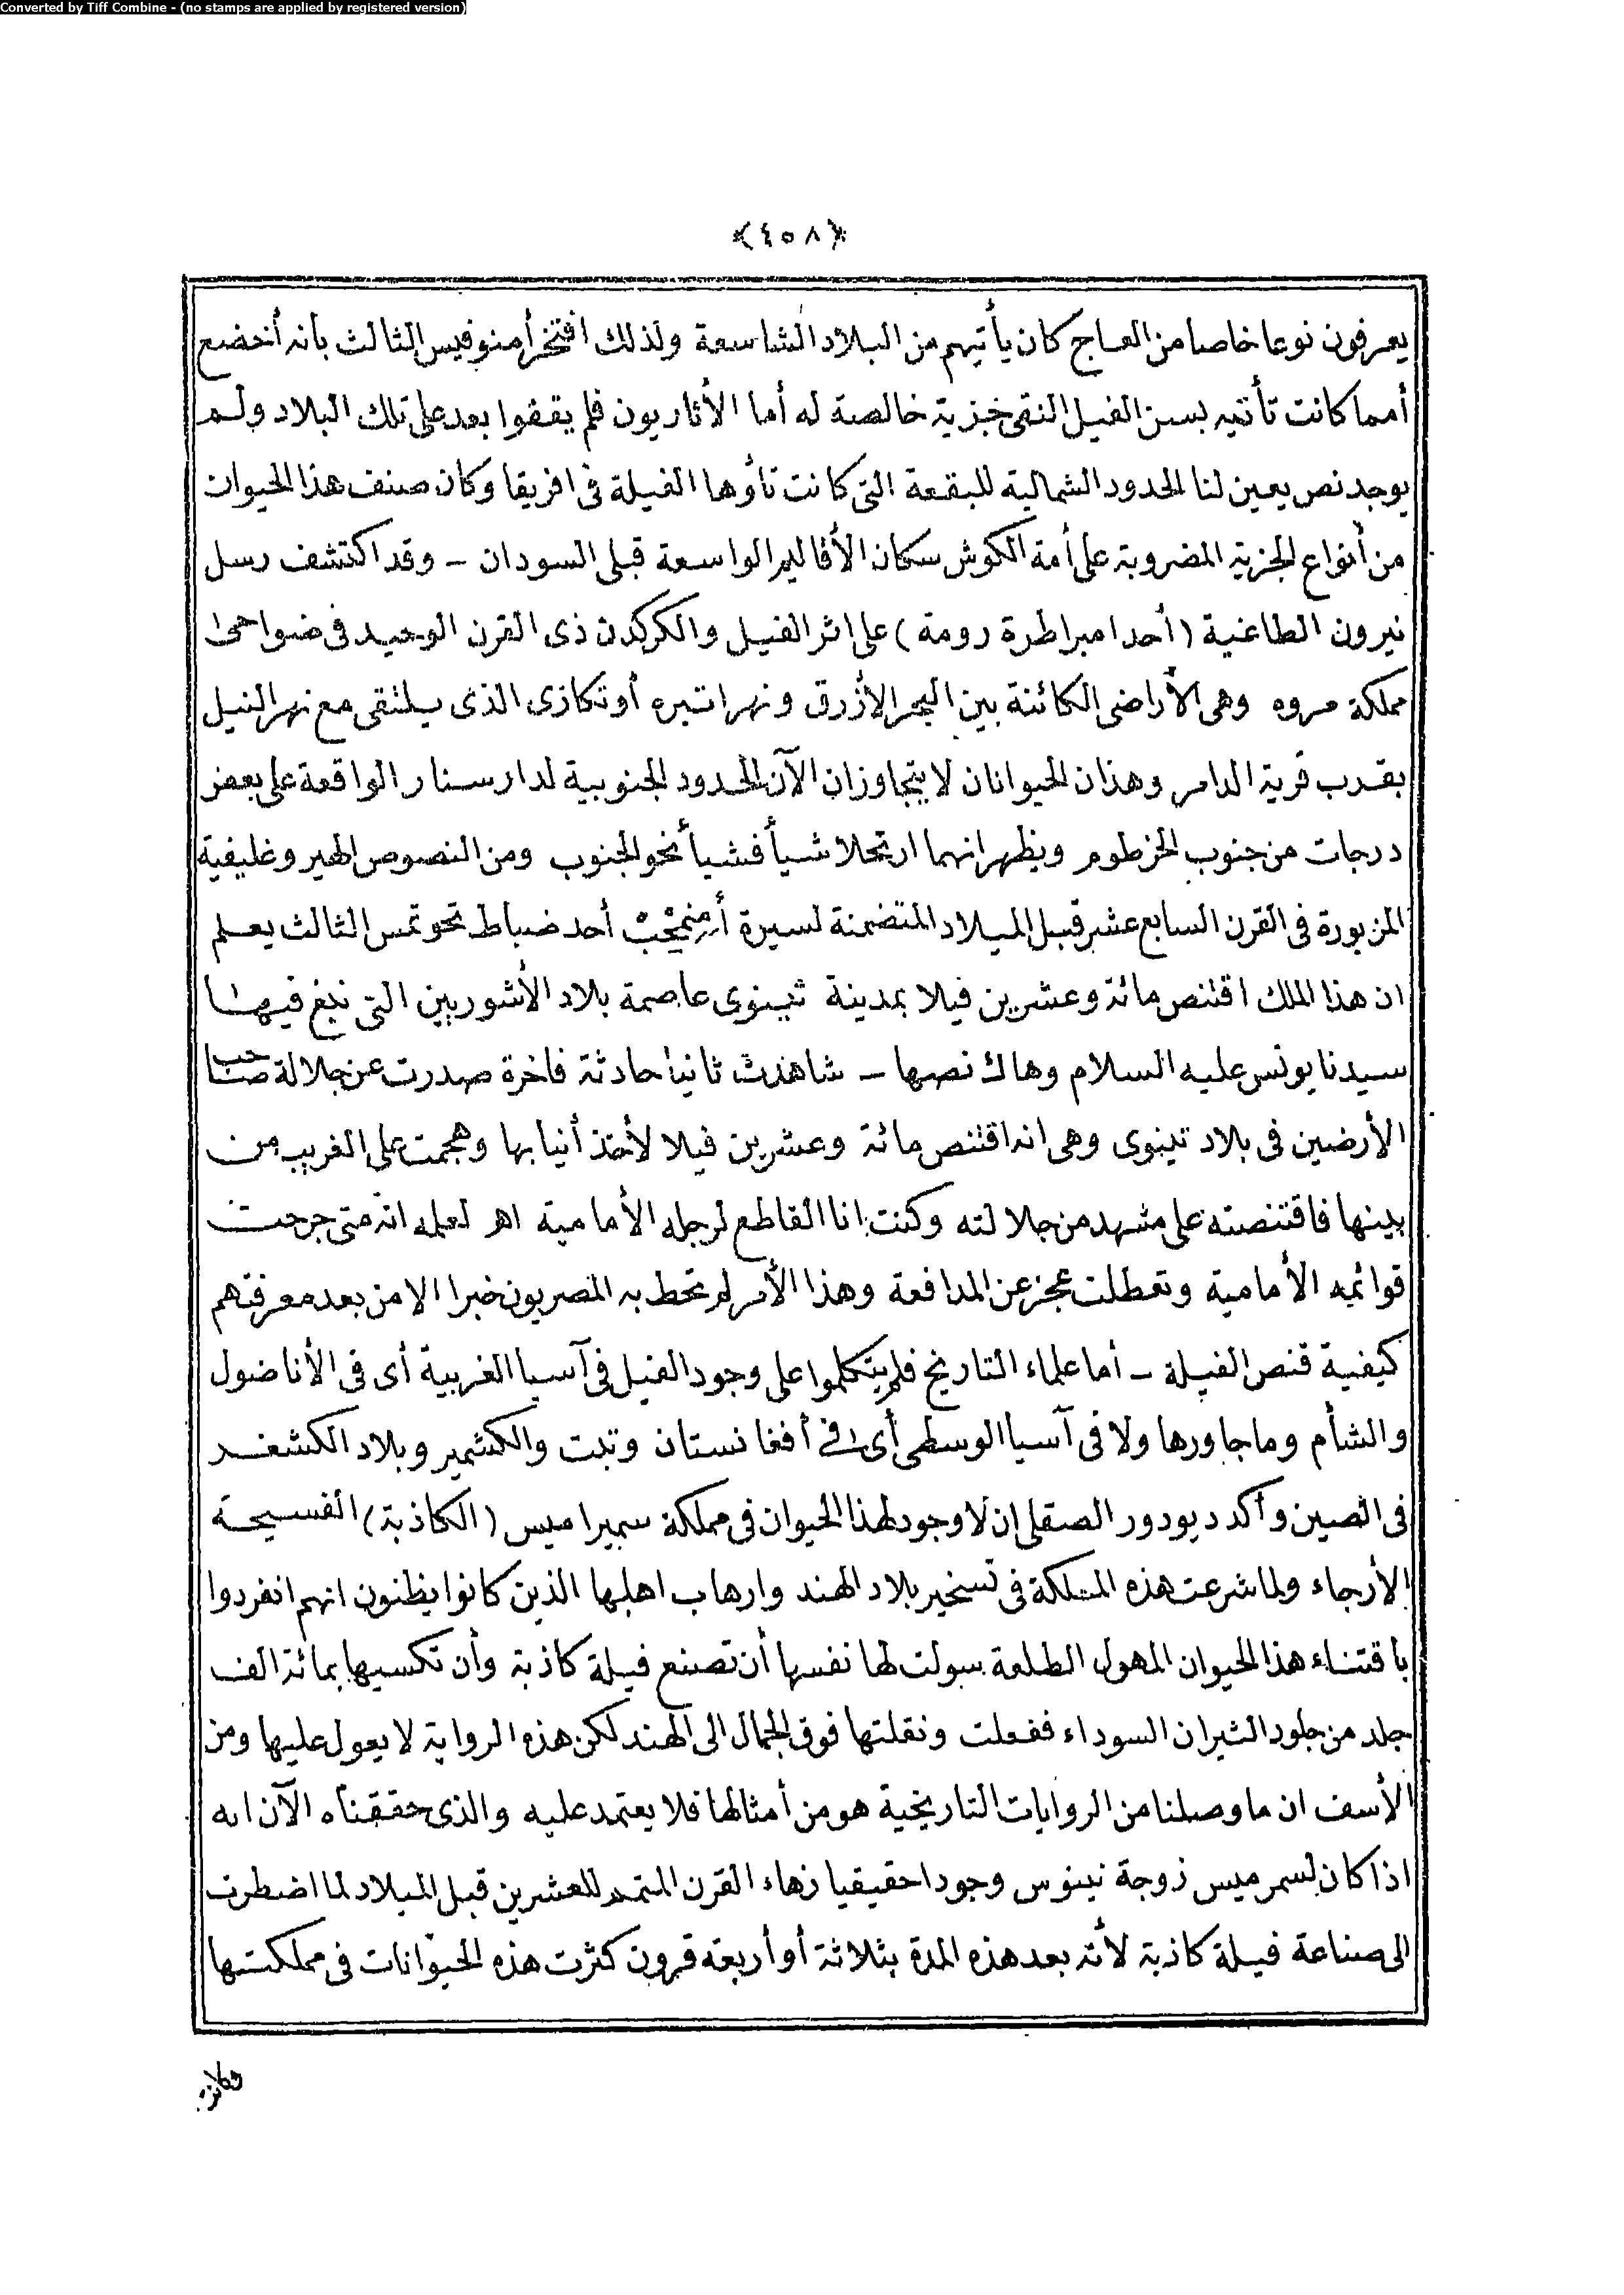 Converted by Tiff Combine - (no stamps are applied by registered version)
﴿٤٠٨﴾
يعرفون نوعا خاصا من العاج كان يأتيهم من البلاد الشاسعة ولذلك افتخر أمنوفيس الثالث بأنه أخضع
أمما كانت تأتيه بسن الفيل النقى جزية خالصة له أما الأثاريون فلم يقفوا بعد على تلك البلاد ولم
يوجد نص يعين لنا الحدود الشمالية للبقعة التى كانت تأوها الفيلة فى افريقا وكان صنف هذا الحيوان
من أنواع الجزية المضروبة على أمة الكوش سكان الأقاليم الواسعة قبلى السودان – وقد اكتشف رسل
نيرون الطاغية (أحد امبراطرة رومة) على اثر الفيل والكركدن ذى القرن الوحيد فى ضواحى
مملكة مروه وهى الأراضى الكائنة بين البحر الأزرق ونهر اتبره أو تكازى الذى يلتقى مع نهر النيل
بقرب قرية الدامر وهذان الحيوانان لا يتجاوزان الآن الحدود الجنوبية لدار سنار الواقعة على بعض
درجات من جنوب الخرطوم ويظهر انهما ارتحلا شيأ فشيأ نحو الجنوب ومن النصوص الهيروغليفية
المزبورة فى القرن السابع عشر قبل الميلاد المتضمنة لسيرة أمنمحب أحد ضباط تحوتمس الثالث يعلم
ان هذا الملك اقتنص مائة وعشرين فيلا بمدينة نينوى عاصمة بلاد الأشوريين التى نبغ فيها
سيدنا يونس عليه السلام وهاك نصها – شاهدت ثانيا حادثة فاخرة صدرت عن جلالة صاحب
الأرضين فى بلاد نينوى وهى انه اقتنص مائة وعشرين فيلا لأخذ أنيابها وهجمت على الغريب من
بينها فاقتنصته على مشهد من جلالته وكنت انا القاطع لرجله الأمامية اهر لعلمه انه متى جرحت
قوائمه الأمامية وتعطلت عجز عن المدافعة وهذا الأمر لم تحط به المصريون خبرا الا من بعد معرفتهم
كيفية قنص الفيلة – أما علماء التاريخ فلم يتكلموا على وجود الفيل فى آسيا الغربية أى فى الأناضول
والشأم وما جاورها ولا فى آسيا الوسطى أى فى أفغانستان وتبت والكشمير وبلاد الكشغر
فى الصين وأكد ديودور الصقلى ان لا وجود لهذا الحيوان فى مملكة سميراميس (الكاذبة) الفسيحة
الأرجاء ولما شرعت هذه الملكة فى تسخير بلاد الهند وارهاب اهلها الذين كانوا يظنون انهم انفردوا
باقتناء هذا الحيوان المهول الطلعة سولت لها نفسها أن تصنع فيلة كاذبة وأن تكسيها بمائة الف
جلد من جلود الثيران السوداء ففعلت ونقلتها فوق الجمال الى الهند لكن هذه الرواية لا يعول عليها ومن
الأسف ان ما وصلنا من الروايات التاريخية هو من أمثالها فلا يعتمد عليه والذى حققناه الآن انه
اذا كان لسمرميس زوجة نينوس وجودا حقيقيا زهاء القرن المتمم للعشرين قبل الميلاد لما اضطرت
الى صناعة فيلة كاذبة لأنه بعد هذه المدة بثلاثة أو أربعة قرون كثرت هذه الحيوانات فى مملكتها